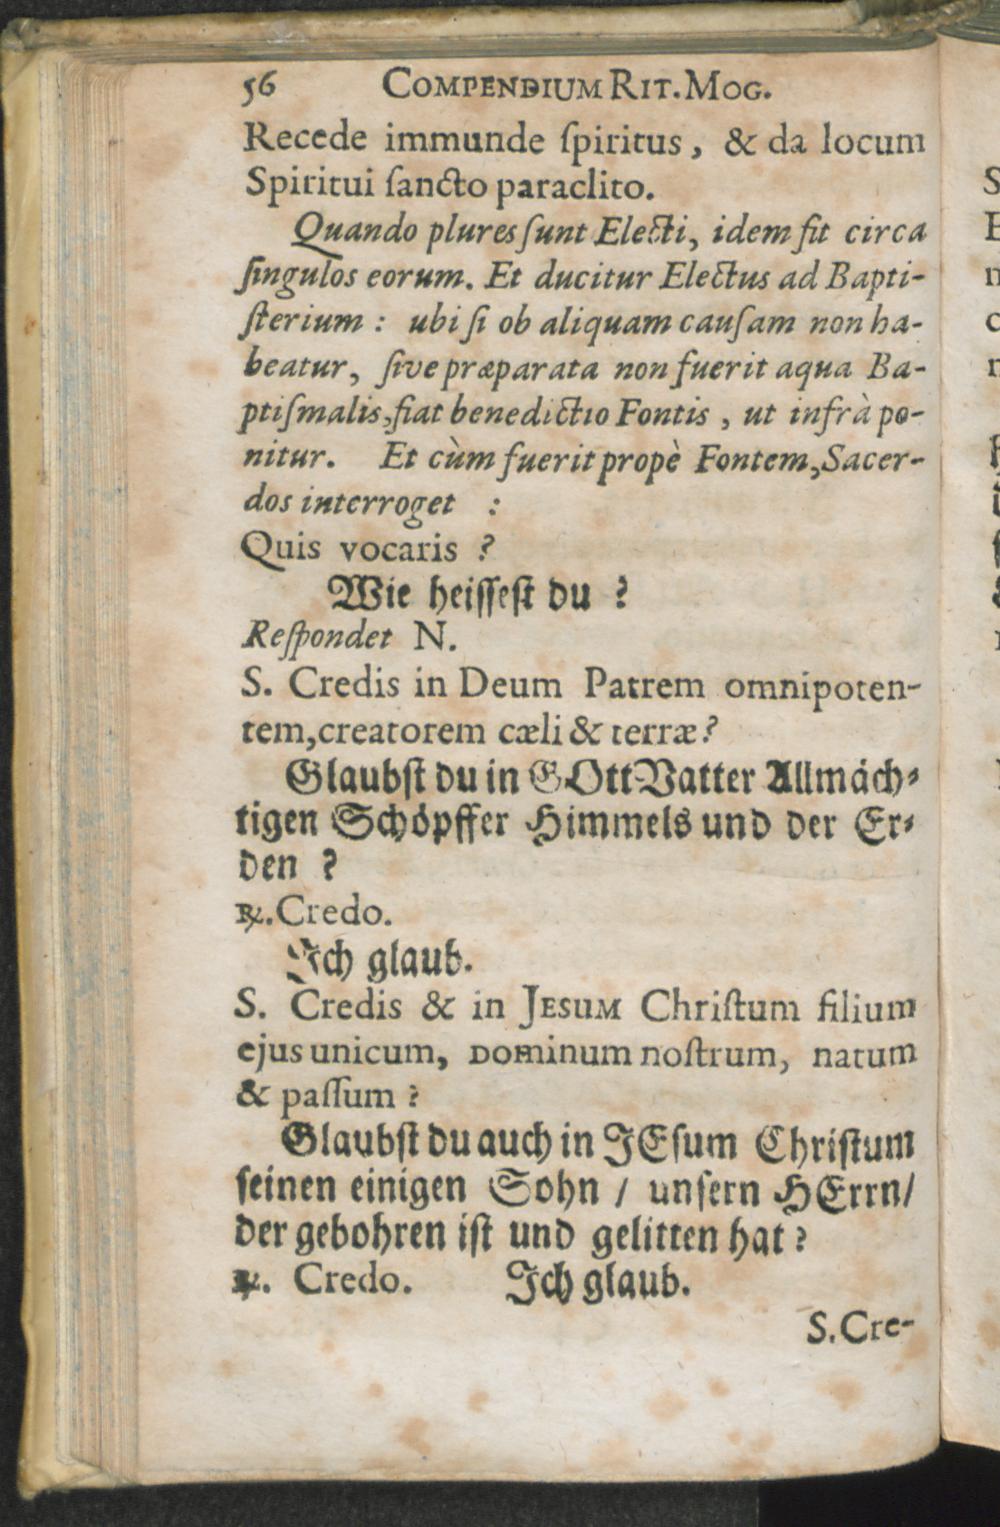 56 COMPENDIUM RIT. MOG.
Recede immunde ſpiritus, & da locum
Spiritui ſancto paraclito.
Quando plures ſunt Electi, idem fit circa
ſingulos eorum. Et ducitur Electus ad Bapti-
ſterium : ubi ſi ob aliquam cauſam non ha-
beatur, ſive præparata non fuerit aqua Ba-
ptiſmalis, fiat benedictio Fontis, ut infrà po-
nitur. Et cùm fuerit propè Fontem, Sacer-
dos interroget :
Quis vocaris ?
Wie heiſſeſt du ?
Reſpondet N.
S. Credis in Deum Patrem omnipoten-
tem, creatorem cæli & terræ?
Glaubſt du in GOtt Vatter Allmäch-
tigen Schöpffer Himmels und der Er-
den ?
℞. Credo.
Ich glaub.
S. Credis & in JESUM Chriſtum filium
ejus unicum, DOMINUM noſtrum, natum
& paſſum ?
Glaubſt du auch in JEſum Chriſtum
ſeinen einigen Sohn / unſern HErrn/
der gebohren iſt und gelitten hat ?
℞. Credo. Ich glaub.
S. Cre-